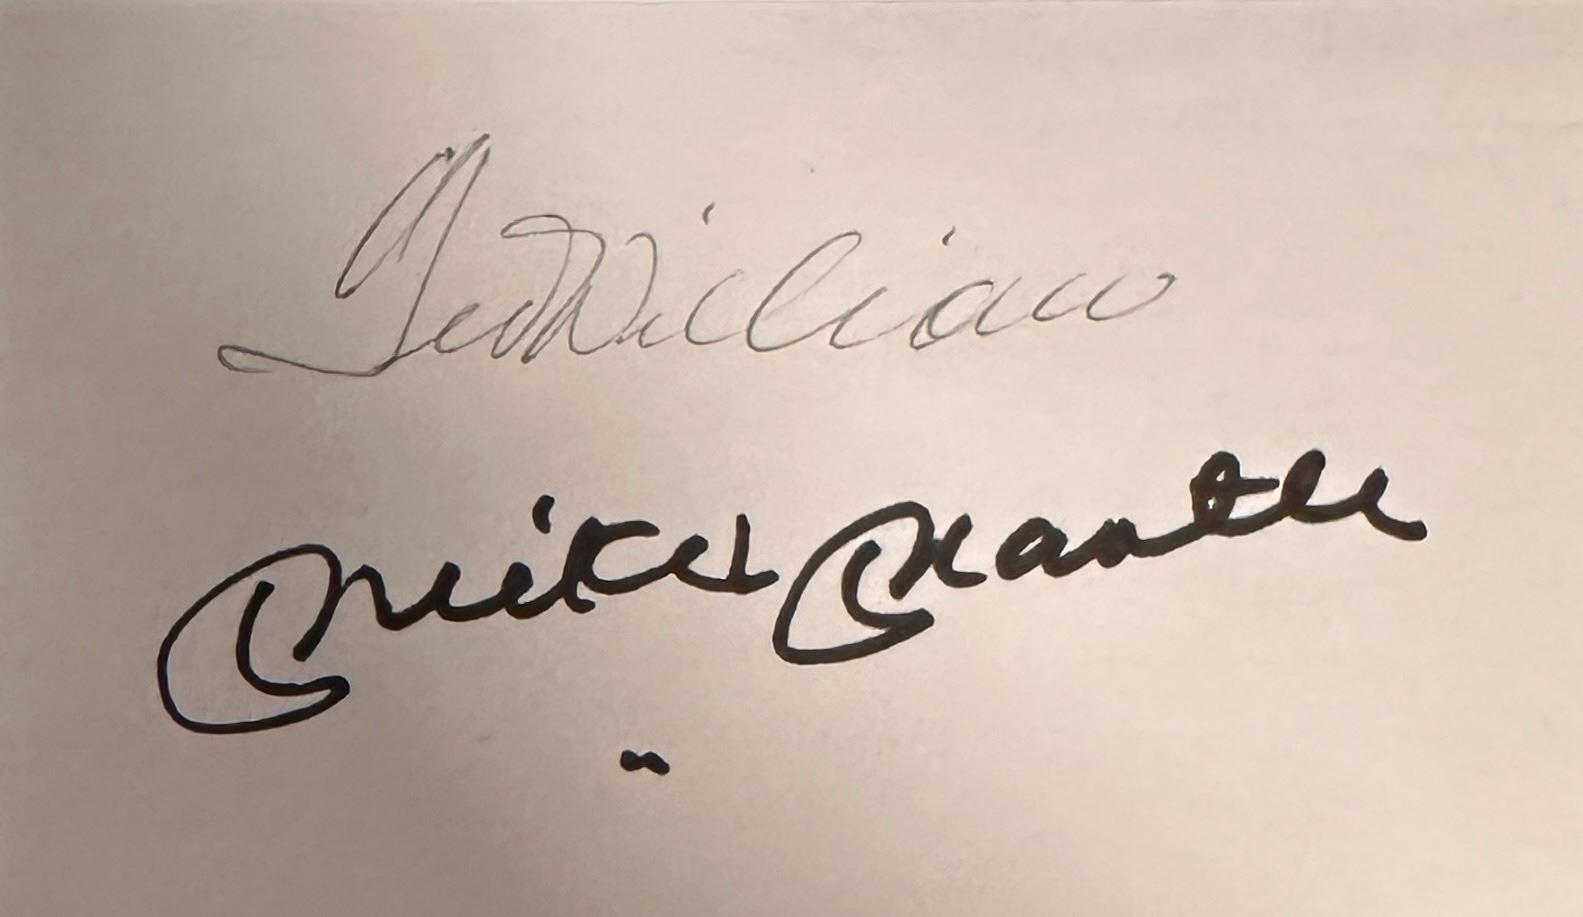 Ted Williams
Mickey Mantle